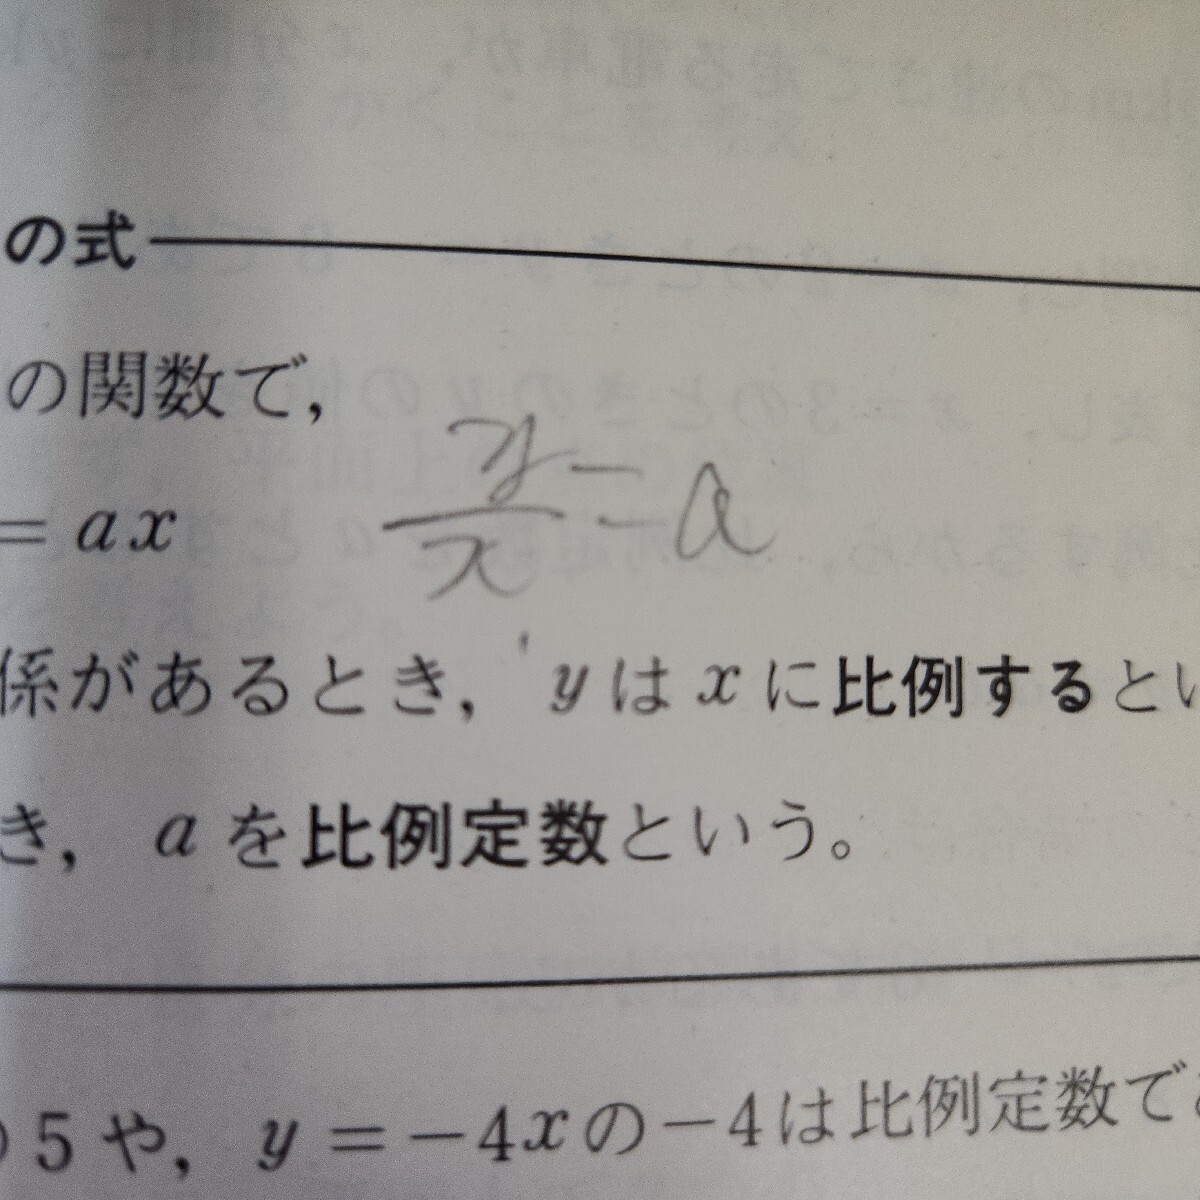 の式
の関数で,
= ax
y/x = a
係があるとき, yはxに比例するとい
き, aを比例定数という。
5や, y=-4xの-4は比例定数で